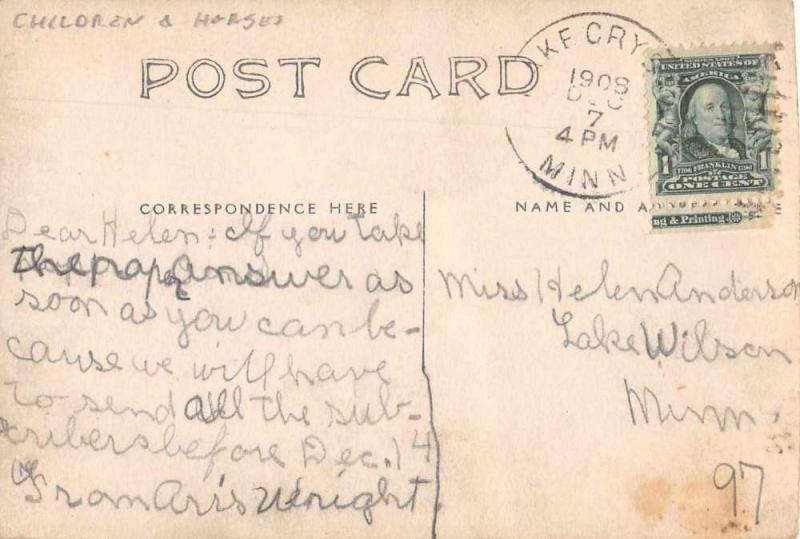 CHILDREN & HORSES
POST CARD
AKE CRY
1908
DEC
7
4 PM
MINN
SERIES 1902
UNITED STATES OF
AMERICA
1 1
1706 FRANKLIN 1790
POSTAGE
ONE CENT
ng & Printing
CORRESPONDENCE HERE
NAME AND A E
Dear Helen: If you take
the paper answer as
soon as you can be-
cause we will have
to send all the sub-
scribers before Dec. 14
From Aris Wright.
Miss Helen Anderson
Lake Wilson
Minn.
97